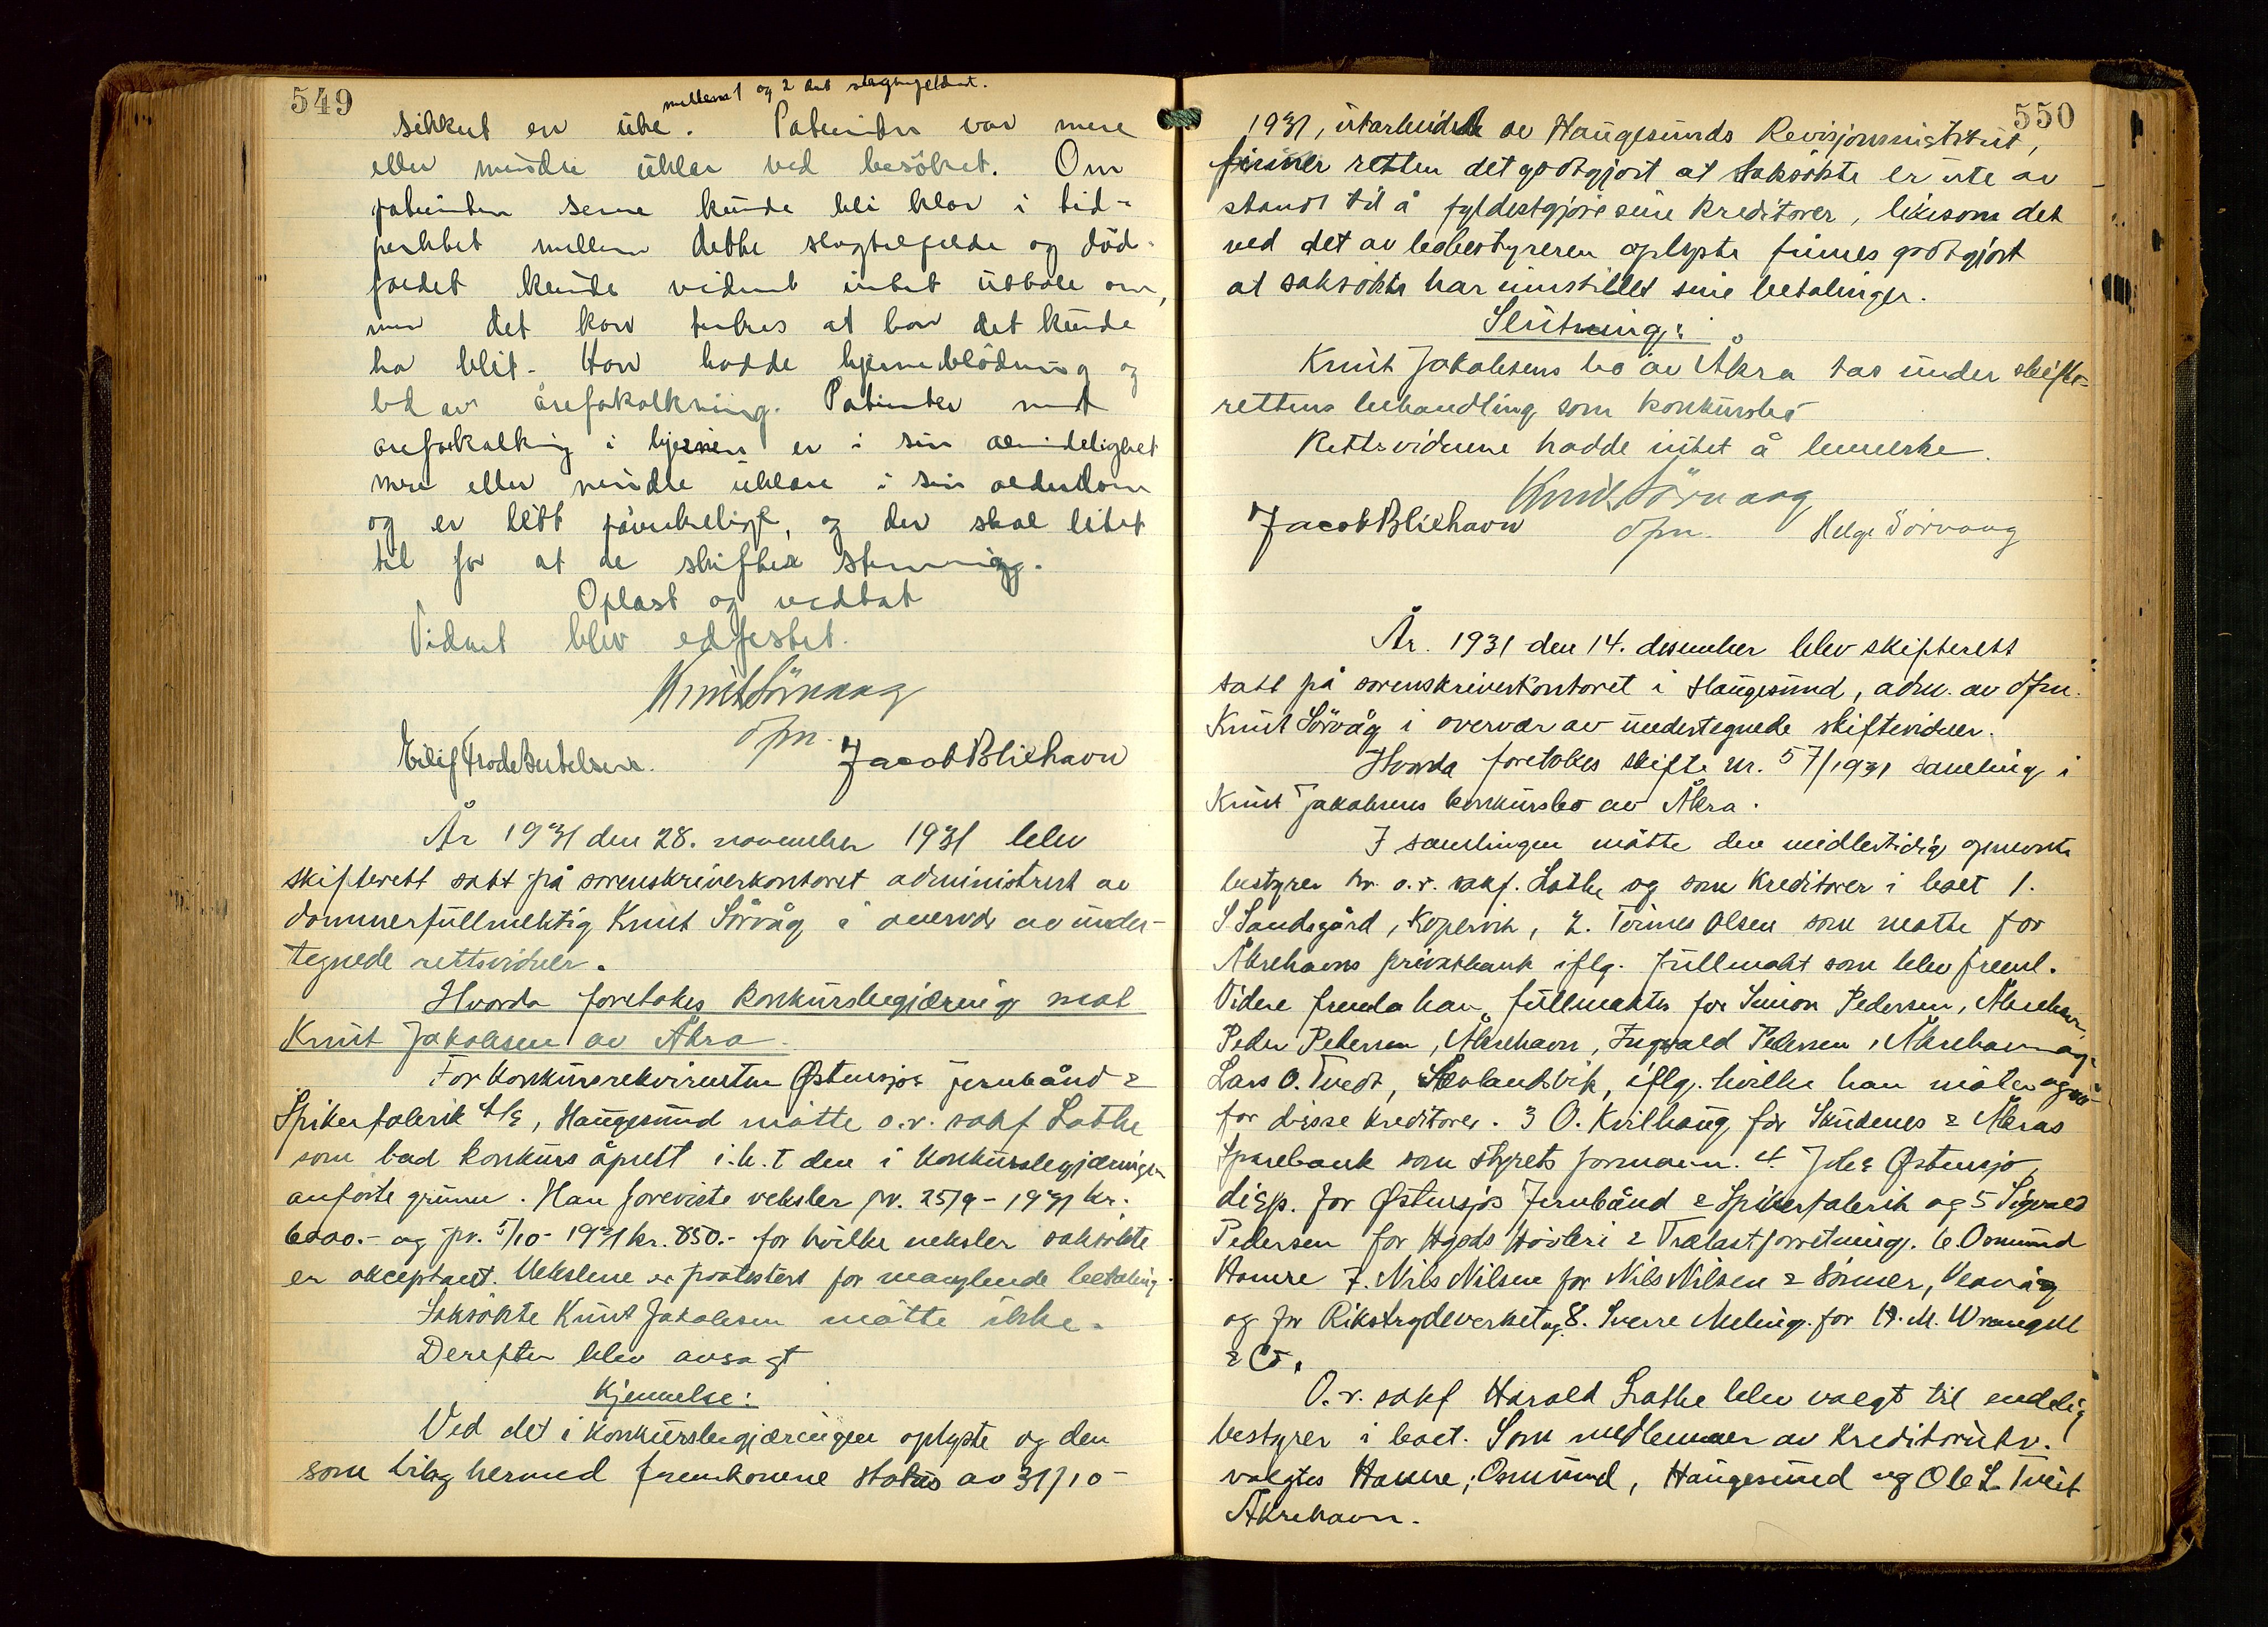 549
mellem 1 og 2 det slagtilfeldet.
sikkert en uke. Patienten var mere
eller mindre uklar ved besøket. Om
patienten senere kunde bli klar i tid-
punktet mellem dette slagtilfelde og død-
faldet kunde vidnet intet uttale om,
men det kan tenkes at han det kunde
ha blit. Han hadde hjerneblødning og
led av åreforkalkning. Patienter med
åreforkalkning i hjernen er i sin almindelighet
mere eller mindre uklare i sin alderdom
og er lett påvirkelige, og der skal litet
til for at de skifter stemning.
Oplæst og vedtat
Vidnet blev edfestet.
Knut Sörvaag
dfm.
Eilif Frode Bertelsen. Jacob Bliehavn
År 1931 den 28. november 1931 blev
skifterett satt på sorenskriverkontoret administrert av
dommerfullmektig Knut Sörvåg i overvær av under-
tegnede rettsvidner.
Hvorda foretokes konkursbegjæring mot
Knut Jakobsen av Åkra.
For konkursrekvirenten Østensjøs Jernbånd &
Spikerfabrik A/S, Haugesund møtte o.r. sakf Lothe
som bad konkurs åpnett i.h.t den i konkursbegjæringen
anførte grunn. Han foreviste veksler pr. 25/9 - 1931 kr.
6000.- og pr. 5/10 - 1931 kr. 850.- for hvilke veksler saksøkte
er akceptant. Vekslene er protestert for manglende betaling.
Saksøkte Knut Jakobsen møtte ikke.
Derefter blev avsagt
Kjennelse:
Ved det i konkursbegjæringen oplyste og den
som bilag hermed fremkomne status av 31/10 -
550
1931, utarbeidet av Haugesunds Revisjonsinstitut,
finner retten det godtgjort at saksøkte er ute av
stand til å fyldestgjøre sine kreditorer, likesom det
ved det av bobestyreren oplyste finnes godtgjort
at saksøkte har innstillet sine betalinger.
Slutning:
Knut Jakobsens bo av Åkra tas under skifte-
rettens behandling som konkursbo
Rettsvidnene hadde intet å bemerke.
Knut Sörvaag
Jacob Bliehavn dfm. Helge Sörvaag
År. 1931 den 14. desember blev skifterett
satt på sorenskriverkontoret i Haugesund, adm. av dfm.
Knut Sörvåg i overvær av undertegnede skiftevidner.
Hvorda foretokes skifte nr. 57/1931 samling i
Knut Jakobsens konkursbo av Åkra.
I samlingen møtte den midlertidig opnevnte
bestyrer hr. o.r. sakf. Lothe og som kreditorer i boet 1.
S. Sandsgård, Kopervik, 2. Tønnes Olsen som møtte for
Åkrehavns privatbank iflg. fullmakt som blev freml.
Videre fremla han fullmakter for Simon Pedersen, Åkrehavn
Peder Pedersen, Åkrehavn, Ingvald Pedersen, Åkrehavn og
Lars O. Tvedt, Sævlandsvik, iflg. hvilke han møter også
for disse kreditorer. 3 O. Kvilhaug for Skudenes & Åkras
Sparebank som styrets formann. 4. Johs Østensjø
disp. for Østensjøs Jernbånd & Spikerfabrik og 5 Sigvald
Pedersen for Hgsds Høvleri & Trælastforretning. 6. Osmund
Hamre 7. Nils Nilsen for Nils Nilsen & Sønner, Veavåg
og for Rikstrygdeverket og 8. Sverre Meling. for H. M. Wrangell
& Co.
O.r. sakf Harald Lothe blev valgt til endelig
bestyrer i boet. Som medlemmer av kreditorutv.
valgtes Hamre, Osmund, Haugesund og Ole L. Tveit
Åkrehavn.